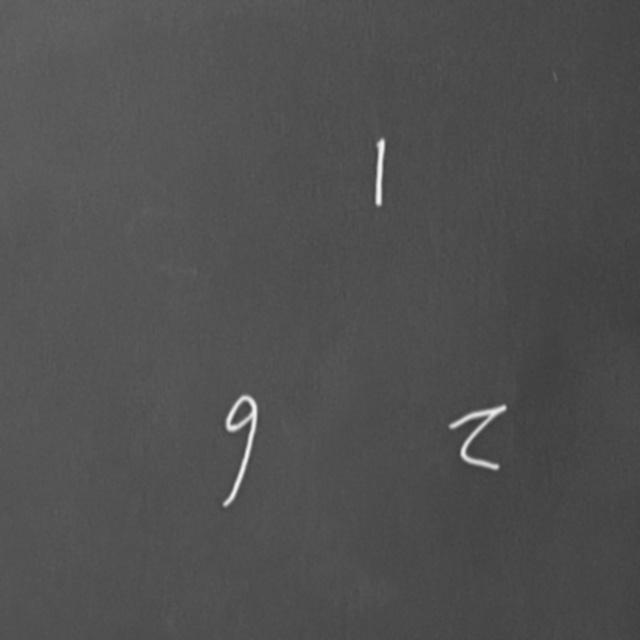 1
9 2